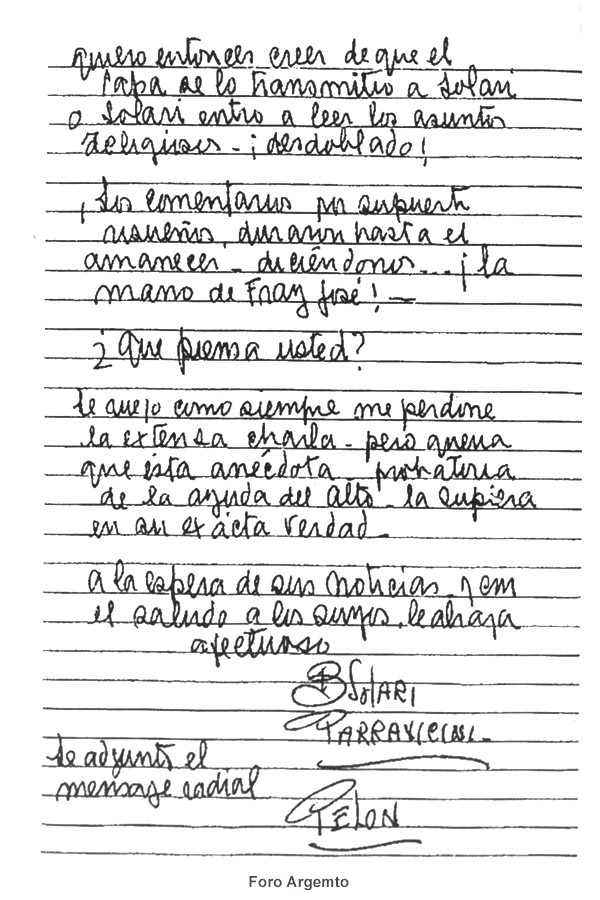 quiero entonces creer de que el
Papa se lo transmitio a Solari
o Solari entro a leer los asuntos
Religiosos - ¡desdoblado!
¡Los comentarios por supuesto
risueños, duraron hasta el
amanecer - diciéndonos... ¡la
mano de Fray José! -
¿Que piensa usted?
le ruego como siempre me perdone
la extensa charla - pero queria
que ésta anécdota probatoria
de la ayuda del alto - la supiera
en su exácta verdad -
a la espera de sus noticias y con
el saludo a los suyos, le abraza
afectuoso
B Solari
Parravicini -
le adjunto el
mensage radial
Pelon
Foro Argemto